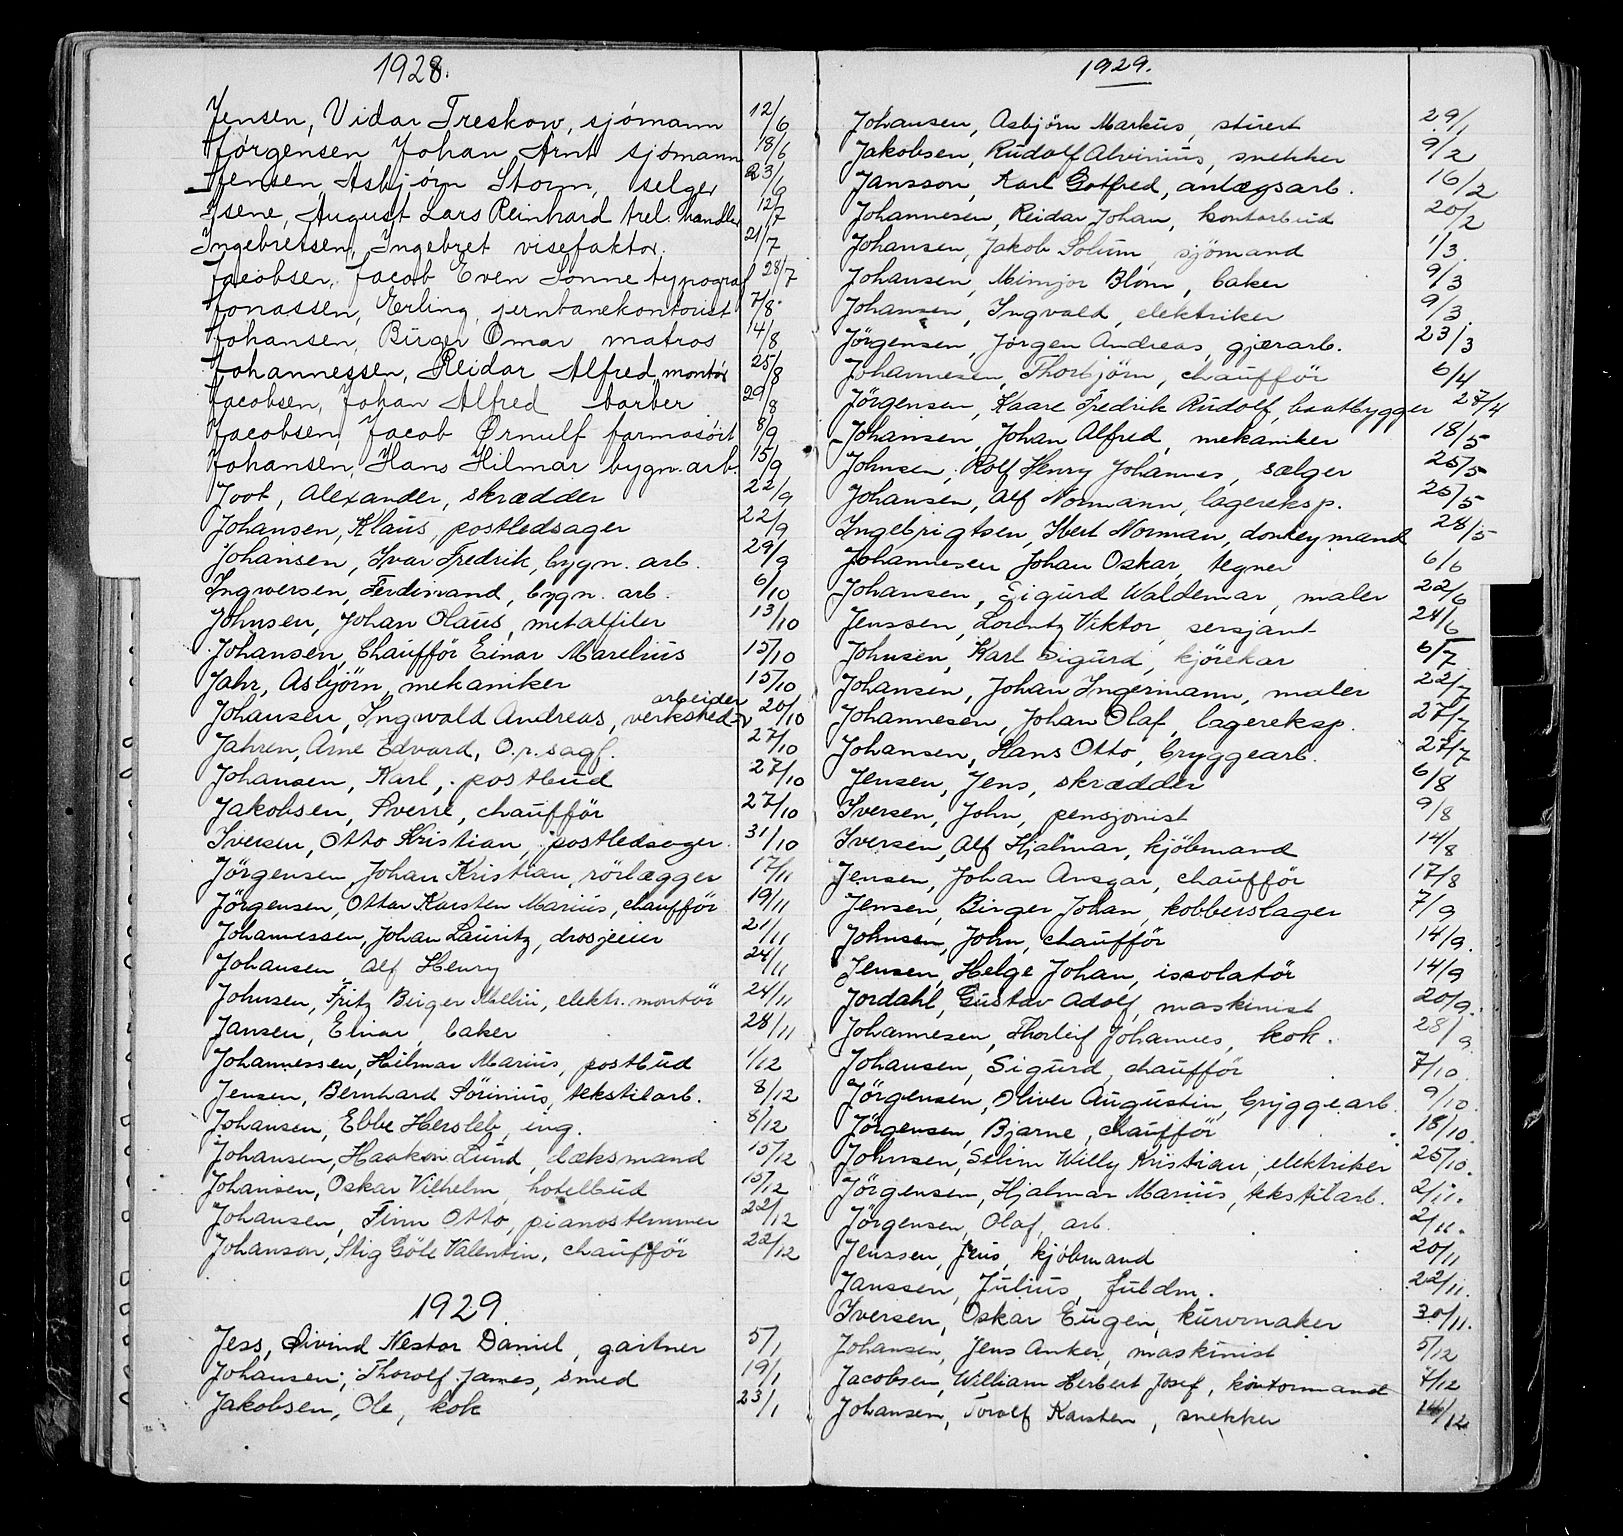 1928.
Jensen, Vidar Treskow, sjómann 12/6
Jørgensen Johan Arnt sjømann 18/6
Jensen, Asbjørn Storm, selger 23/6
Isene, August Lars Reinhard trel. handler 12/7
Ingebretsen, Ingebret visefaktor. 21/7
Jacobsen, Jacob Even Sonne typograf 28/7
Jonassen, Erling, jernbanekontorist 7/8
Johansen, Birger Omar matros 4/8
Johannessen, Reidar Alfred montör 25/8
Jacobsen, Johan Alfred barber 29/8
Jacobsen, Jacob Ørnulf farmasöit 8/9
Johansen, Hans Hilmar bygn. arb. 15/9
Joot, Alexander, skrædder 22/9
Johansen, Klaus, postledsager 22/9
Johansen, Ivar Fredrik, bygn. arb. 29/9
Ingwersen, Ferdinand, bygn. arb. 6/10
Johnsen, Johan Olaus, metalfiler 13/10
Johansen, Chaufför Einar Marelius 15/10
Jahr, Asbjörn, mekaniker 15/10
Johansen, Ingvald Andreas, verksted- arbeider 20/10
Jahren, Arne Edvard, O.r. sagf. 27/10
Johansen, Karl, postbud 27/10
Jakobsen, Sverre, chaufför 27/10
Iversen, Otto Kristian, postledsager. 31/10
Jörgensen, Johan Kristian, rörlægger 17/11
Jörgensen, Ottar Karsten Marius, chaufför 19/11
Johannessen, Johan Lauritz, drosjeeier 21/11
Johansen, Alf Henry 24/11
Johnsen, Fritz Birger Melin, elektr. montör 24/11
Jansen, Einar, baker 28/11
Johannessen, Hilmar Marius, postbud 1/12
Jensen, Bernhard Sörinius, tekstilarb. 8/12
Johansen, Ebbe Hersleb, ing. 8/12
Johansen, Haakon Lund, dæksmand 15/12
Johansen, Oskar Vilhelm, hotelbud 15/12
Johansen, Finn Otto, pianostemmer 22/12
Johanson, Stig Göte Valentin, chaufför 22/12
1929.
Jess, Eivind Nestor Daniel, gartner 5/1
Johansen, Thorolf James, smed 19/1
Jakobsen, Ole, kok 23/1
1929.
Johansen, Asbjörn Markus, stuert 29/1
Jakobsen, Rudolf Alvinius, snekker 9/2
Jansson, Karl Gotfred, anlægsarb. 16/2
Johannesen, Reidar Johan, kontorbud 20/2
Johansen, Jakob Solum, sjömand 1/3
Johansen, Mimjor Blom, baker 9/3
Johansen, Ingvald, elektriker 9/3
Jörgensen, Jörgen Andreas, gjærarb. 23/3
Johannesen, Thorbjörn, chaufför 6/4
Jörgensen, Kaare Fredrik Rudolf, baatbygger 27/4
Johansen, Johan Alfred, mekaniker 18/5
Johnsen, Rolf Henry Johannes, sælger 25/5
Johansen, Alf Normann, lagereksp. 25/5
Ingebrigtsen, Kbert Norman, donkeymand 28/5
Johannesen Johan Oskar, tegner 6/6
Johansen, Sigurd Waldemar, maler 22/6
Jenssen, Lorentz Viktor, sersjant 24/6
Johnsen, Karl Sigurd, kjörekar 6/7
Johansen, Johan Ingermann, maler 22/7
Johannesen, Johan Olaf, lagereksp. 27/7
Johansen, Hans Otto, bryggearb. 27/7
Jensen, Jens, skrædder 6/8
Iversen, John, pensjonist 9/8
Iversen, Alf Hjalmar, kjöbmand 14/8
Jensen, Johan Ansgar, chaufför 17/8
Jensen, Birger Johan, kobberslager 7/9
Johnsen, John, chaufför 14/9.
Jensen, Helge Johan, issolatör 14/9
Jordahl, Gustav Adolf, maskinist 20/9.
Johannesen, Thorleif Johannes, kok. 28/9
Johansen, Sigurd, chaufför 7/10.
Jörgensen, Oliver Augustin, bryggearb. 9/10.
Jörgensen, Bjarne, chaufför 18/10.
Johnsen, Selim Willy Kristian, elektriker 25/10.
Jörgensen, Hjalmar Marius, tekstilarb. 2/11.
Jörgensen, Olaf, arb. 2/11.
Jenssen, Jens, kjöbmand 20/11
Janssen, Julius, fuldm. 22/11.
Iversen, Oskar Eugen, kurvmaker 30/11.
Johansen, Jens Anker, maskinist 5/12
Jacobsen, William Herbert Josef, kontormand 7/12
Johansen, Torolf Karsten, snekker 14/12